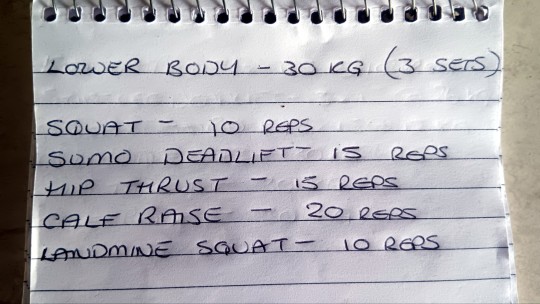 LOWER BODY - 30 KG (3 SETS)
SQUAT - 10 REPS
SUMO DEADLIFT - 15 REPS
HIP THRUST - 15 REPS
CALF RAISE - 20 REPS
LANDMINE SQUAT - 10 REPS